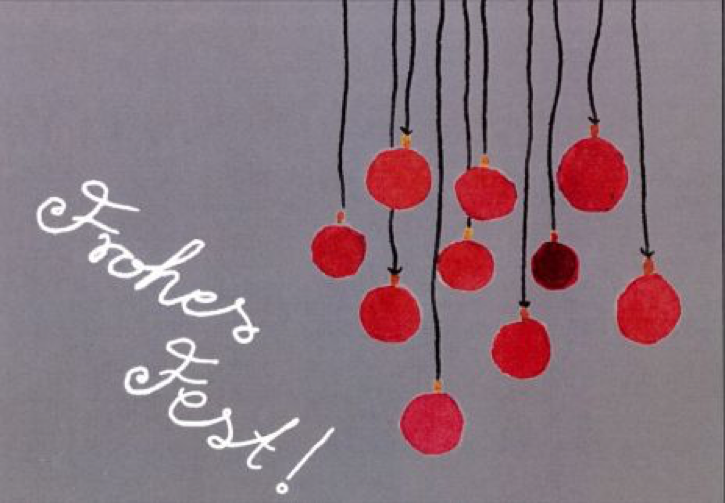 Frohes
Fest!